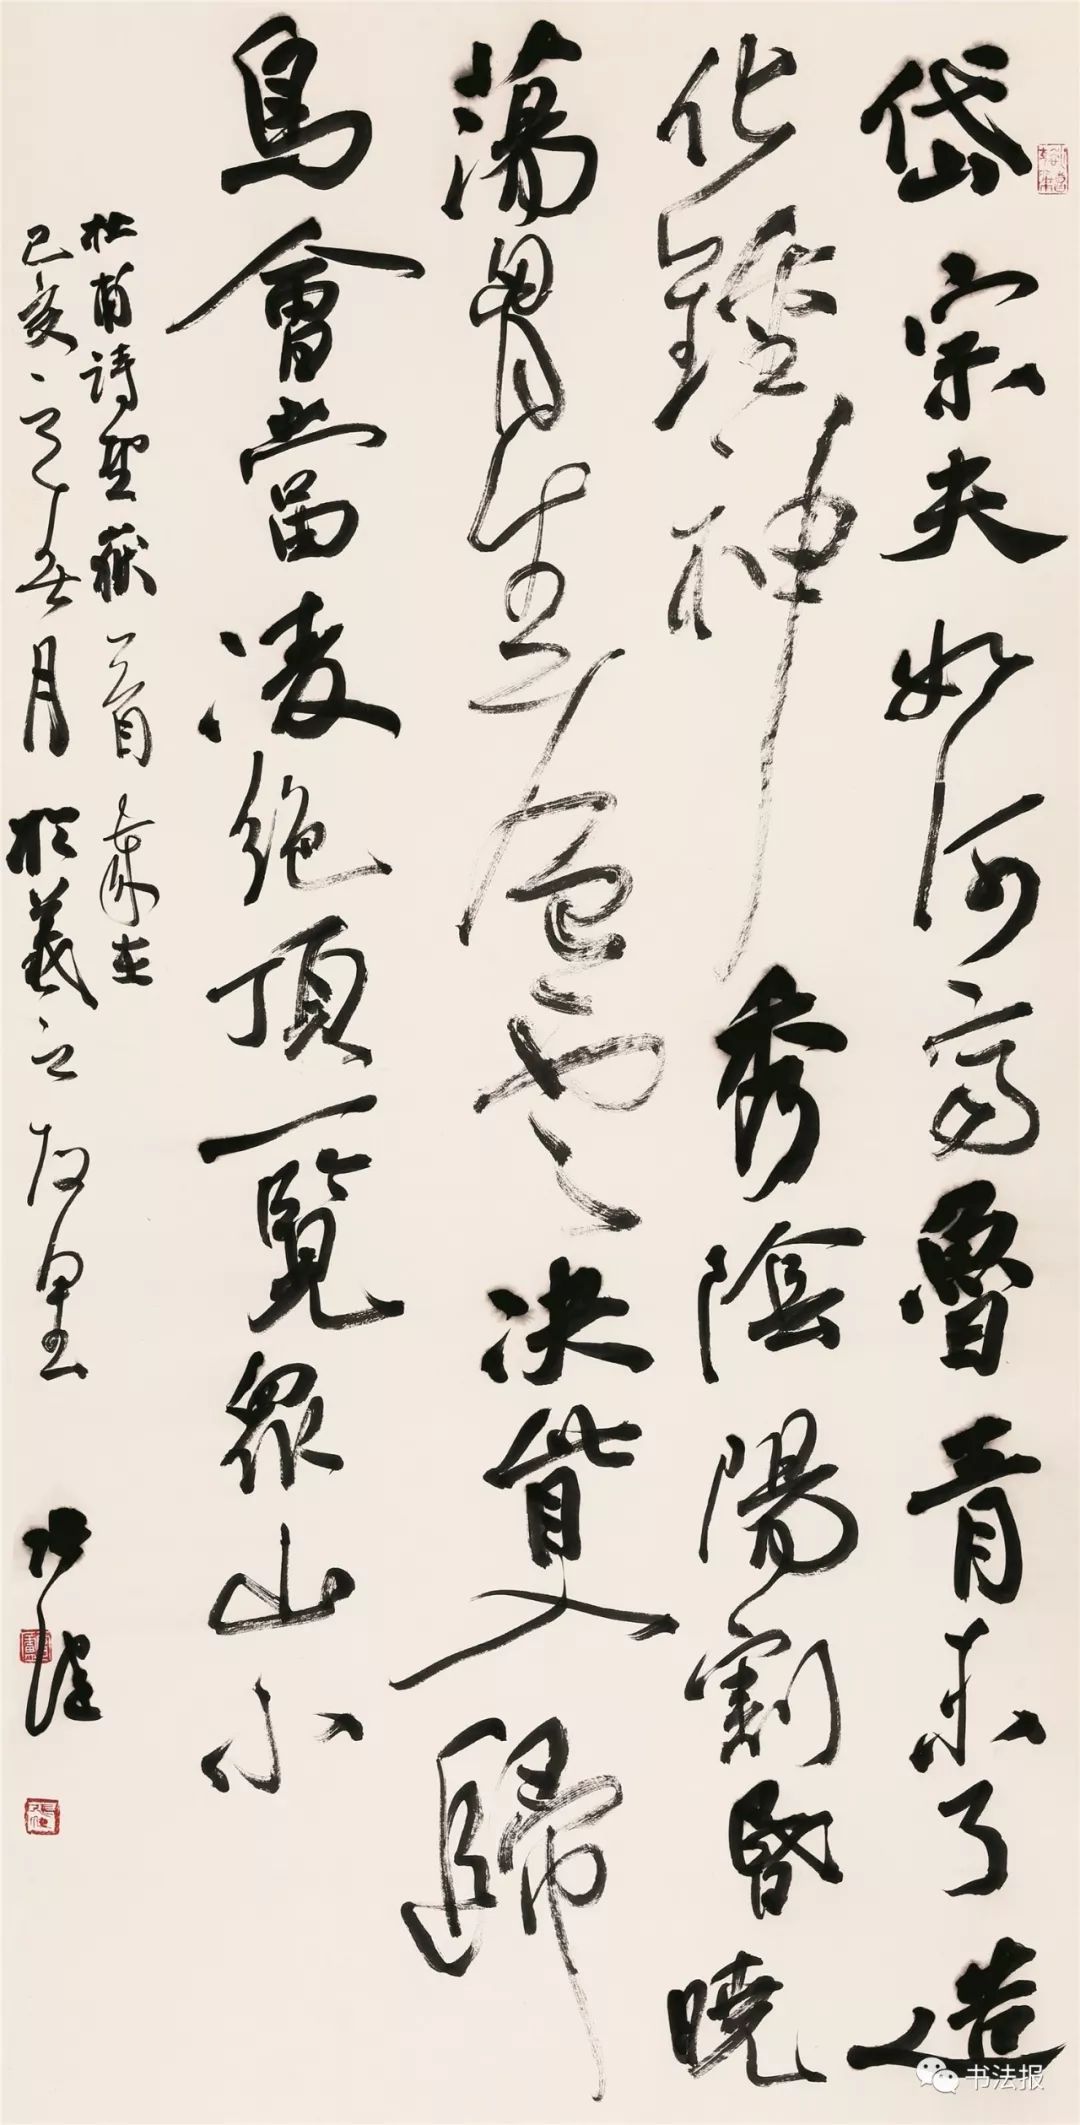 岱宗夫如何齊魯青未了造
化鍾神秀陰陽割昏曉
蕩胷生層雲决眥入歸
鳥會當凌絶頂一覽眾山小
杜甫詩望嶽一首歲在
己亥之春月於羲之故里
书法报